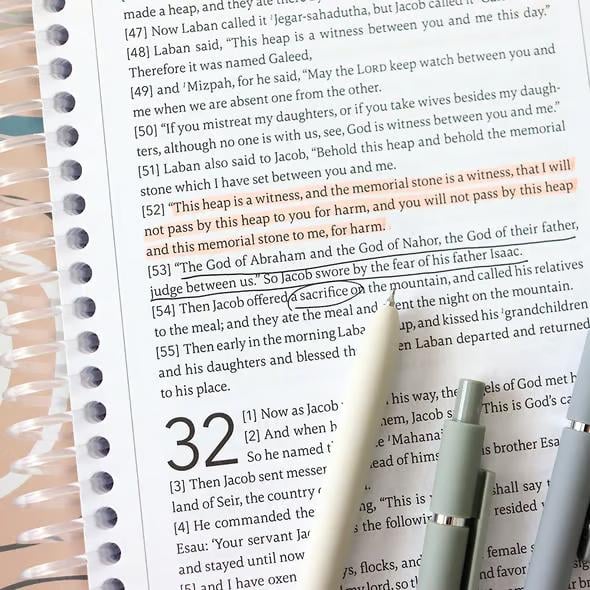 made a heap, and they ate there
[47] Now Laban called it ¹Jegar-sahadutha, but Jacob called it
[48] Laban said, “This heap is a witness between you and me this day.”
Therefore it was named Galeed,
[49] and ¹Mizpah, for he said, “May the LORD keep watch between you and
me when we are absent one from the other.
[50] “If you mistreat my daughters, or if you take wives besides my daugh-
ters, although no one is with us, see, God is witness between you and me.”
[51] Laban also said to Jacob, “Behold this heap and behold the memorial
stone which I have set between you and me.
[52] “This heap is a witness, and the memorial stone is a witness, that I will
not pass by this heap to you for harm, and you will not pass by this heap
and this memorial stone to me, for harm.
[53] “The God of Abraham and the God of Nahor, the God of their father,
judge between us.” So Jacob swore by the fear of his father Isaac.
[54] Then Jacob offered a sacrifice on the mountain, and called his relatives
to the meal; and they ate the meal and ent the night on the mountain.
[55] Then early in the morning Laba up, and kissed his ¹grandchildren
and his daughters and blessed th en Laban departed and returned
to his place.
32
[1] Now as Jacob his way, the els of God met h
[2] And when h hem, Jacob s This is God’s ca
So he named t e ¹Mahanai
[3] Then Jacob sent messen ead of hims s brother Esa
land of Seir, the country
[4] He commanded the ng, “This is shall say
Esau: ‘Your servant Jac s the followin resided
and stayed until now
[5] and I have oxen ys, flocks, and female s
my lord, so th nd favor sig